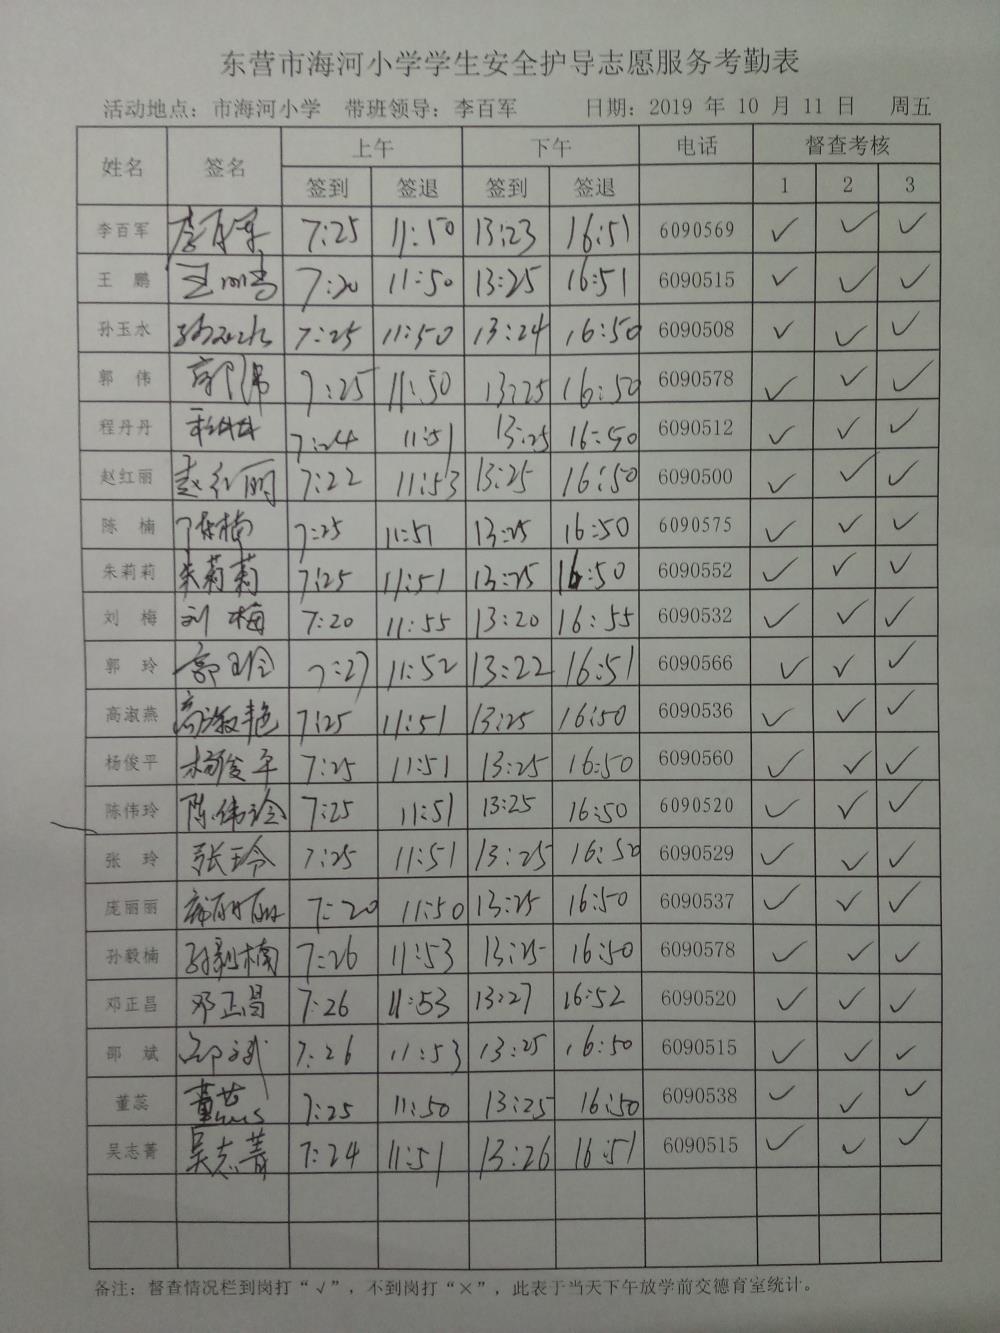 东营市海河小学学生安全护导志愿服务考勤表
活动地点：市海河小学 带班领导：李百军 日期：2019 年 10 月 11 日 周五
姓名 签名 上午 下午 电话 督查考核
签到 签退 签到 签退 1 2 3
李百军 李百军 7:25 11:50 13:23 16:51 6090569 ✓ ✓ ✓
王 鹏 王鹏 7:20 11:50 13:25 16:51 6090515 ✓ ✓ ✓
孙玉水 孙玉水 7:25 11:50 13:24 16:50 6090508 ✓ ✓ ✓
郭 伟 郭伟 7:25 11:50 13:25 16:50 6090578 ✓ ✓ ✓
程丹丹 程丹丹 7:24 11:51 13:25 16:50 6090512 ✓ ✓ ✓
赵红丽 赵红丽 7:22 11:53 13:25 16:50 6090500 ✓ ✓ ✓
陈 楠 陈楠 7:25 11:51 13:25 16:50 6090575 ✓ ✓ ✓
朱莉莉 朱莉莉 7:25 11:51 13:25 16:50 6090552 ✓ ✓ ✓
刘 梅 刘梅 7:20 11:55 13:20 16:55 6090532 ✓ ✓ ✓
郭 玲 郭玲 7:27 11:52 13:22 16:51 6090566 ✓ ✓ ✓
高淑燕 高淑艳 7:25 11:51 13:25 16:50 6090536 ✓ ✓ ✓
杨俊平 杨俊平 7:25 11:51 13:25 16:50 6090560 ✓ ✓ ✓
陈伟玲 陈伟玲 7:25 11:51 13:25 16:50 6090520 ✓ ✓ ✓
张 玲 张玲 7:25 11:51 13:25 16:50 6090529 ✓ ✓ ✓
庞丽丽 庞丽丽 7:20 11:50 13:25 16:50 6090537 ✓ ✓ ✓
孙毅楠 孙毅楠 7:26 11:53 13:25 16:50 6090578 ✓ ✓ ✓
邓正昌 邓正昌 7:26 11:53 13:27 16:52 6090520 ✓ ✓ ✓
邵 斌 邵斌 7:26 11:53 13:25 16:50 6090515 ✓ ✓ ✓
董蕊 董蕊 7:25 11:50 13:25 16:50 6090538 ✓ ✓ ✓
吴志菁 吴志菁 7:24 11:51 13:26 16:51 6090515 ✓ ✓ ✓
备注：督查情况栏到岗打“√”，不到岗打“×”，此表于当天下午放学前交德育室统计。